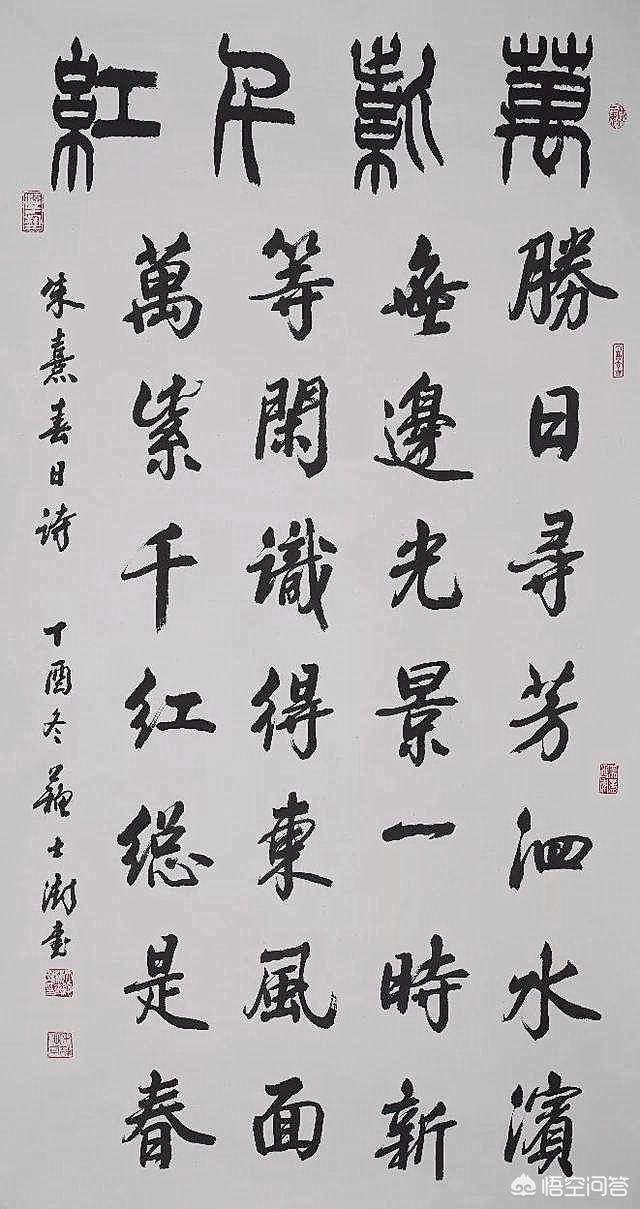 萬紫千紅
勝日尋芳泗水濱
無邊光景一時新
等閑識得東風面
萬紫千红總是春
朱熹春日詩 丁酉冬蘇士澍書
悟空问答